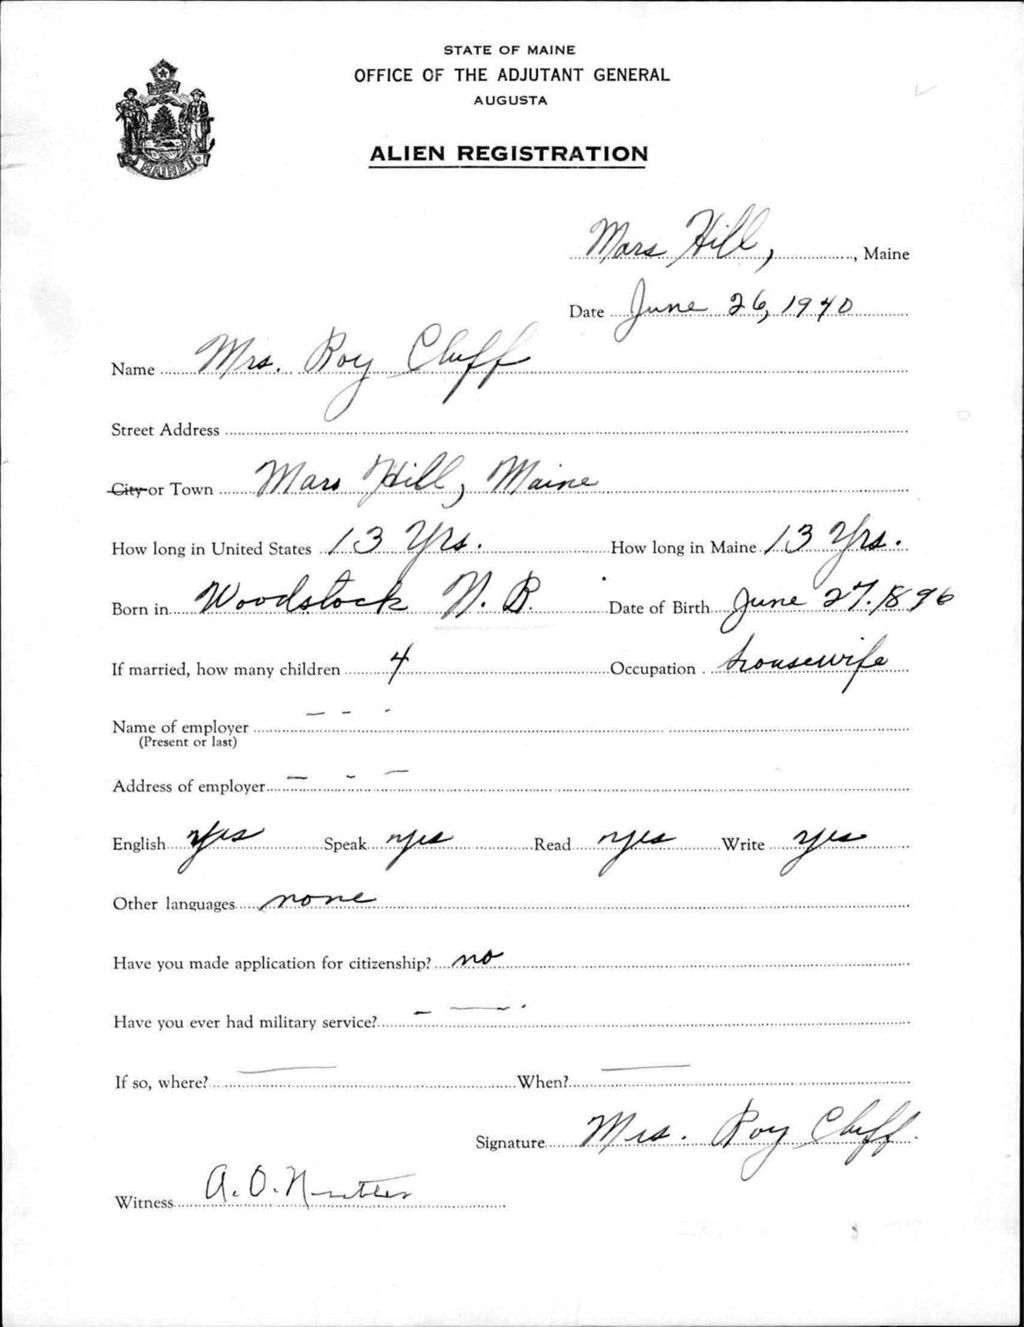 STATE OF MAINE
OFFICE OF THE ADJUTANT GENERAL
AUGUSTA
ALIEN REGISTRATION
MAINE
Mars Hill, , Maine
Date June 26, 1940
Name Mrs. Roy Cluff
Street Address
City or Town Mars Hill, Maine
How long in United States 13 Yrs. How long in Maine 13 Yrs.
Born in Woodstock N. B. Date of Birth June 27. 1896
If married, how many children 4 Occupation housewife
Name of employer - - -
(Present or last)
Address of employer - - -
English yes Speak yes Read yes Write yes
Other languages none
Have you made application for citizenship? no
Have you ever had military service? - —
If so, where? — When? —
Signature Mrs. Roy Cluff.
Witness A. O.